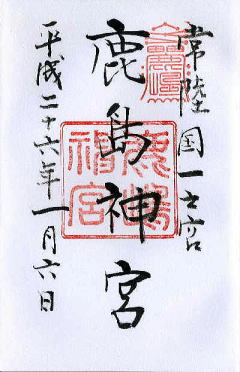 常陸国一之宮
鹿島神宮
平成二十六年一月六日
鹿嶋神宮